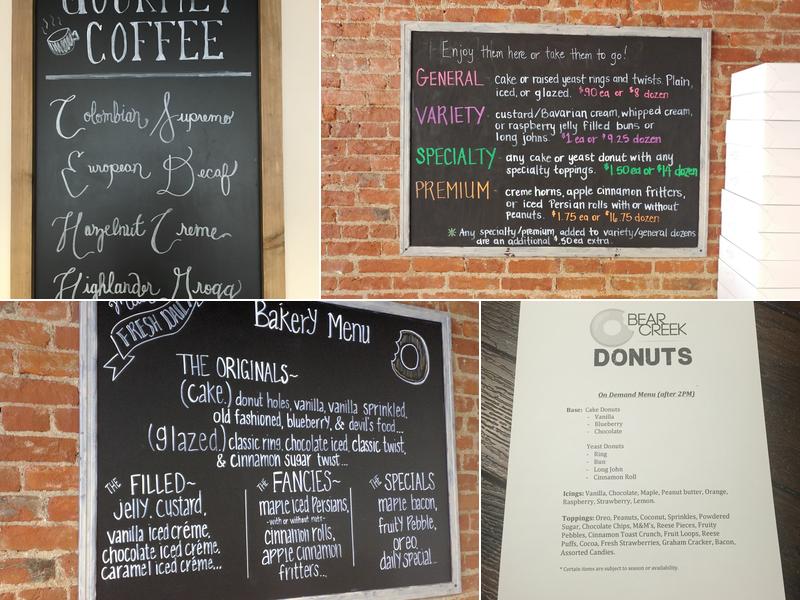 GOURMET
COFFEE
Colombian Supremo
European Decaf
Hazelnut Creme
Highlander Grogg
Enjoy them here or take them to go!
GENERAL - cake or raised yeast rings and twists. Plain,
iced, or glazed. $.90 ea or $8 dozen
VARIETY - custard/Bavarian cream, whipped cream,
or raspberry jelly filled buns or
long johns. $1 ea or $9.25 dozen
SPECIALTY - any cake or yeast donut with any
specialty toppings. $1.50 ea or $14 dozen
PREMIUM - creme horns, apple cinnamon fritters,
or iced Persian rolls with or without
peanuts. $1.75 ea or $16.75 dozen
* Any specialty/premium added to variety/general dozens
are an additional $.50 ea extra.
FRESH DAILY
Bakery Menu
THE ORIGINALS~
(cake.) donut holes, vanilla, vanilla sprinkled,
old fashioned, blueberry, & devil's food...
(glazed.) classic ring, chocolate iced, classic twist,
& cinnamon sugar twist...
THE FILLED~
jelly, custard,
vanilla iced créme,
chocolate iced créme,
caramel iced créme...
THE FANCIES~
maple iced Persians,
-with or without nuts-
cinnamon rolls,
apple cinnamon
fritters...
THE SPECIALS
maple bacon,
fruity pebble,
oreo,
daily special...
BEAR
CREEK
DONUTS
On Demand Menu (after 2PM)
Base: Cake Donuts
- Vanilla
- Blueberry
- Chocolate
Yeast Donuts
- Ring
- Bun
- Long John
- Cinnamon Roll
Icings: Vanilla, Chocolate, Maple, Peanut butter, Orange,
Raspberry, Strawberry, Lemon.
Toppings: Oreo, Peanuts, Coconut, Sprinkles, Powdered
Sugar, Chocolate Chips, M&M's, Reese Pieces, Fruity
Pebbles, Cinnamon Toast Crunch, Fruit Loops, Reese
Puffs, Cocoa, Fresh Strawberries, Graham Cracker, Bacon,
Assorted Candies.
* Certain items are subject to season or availability.